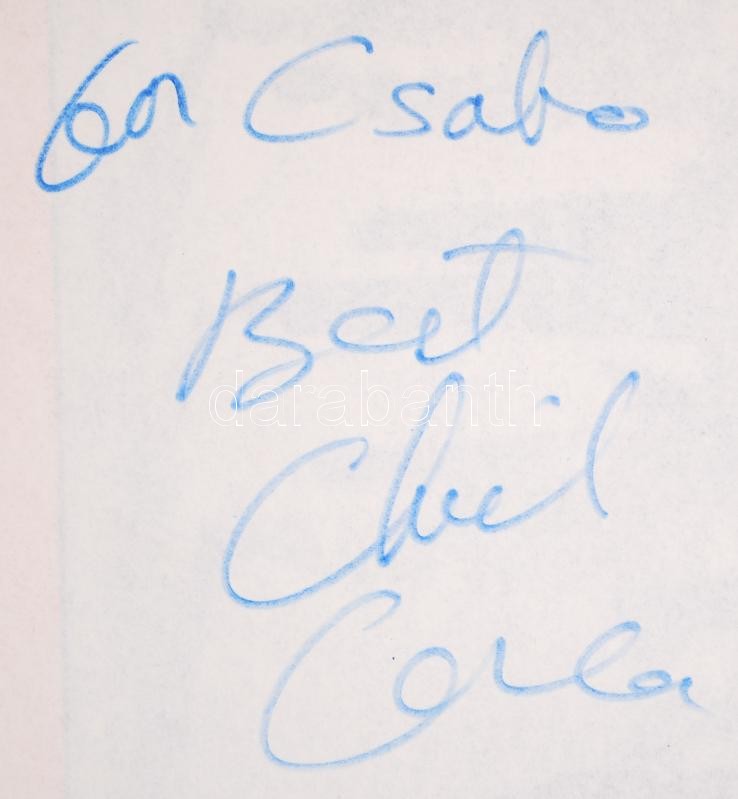 For Csaba
Best
darabanth
Chick
Corea